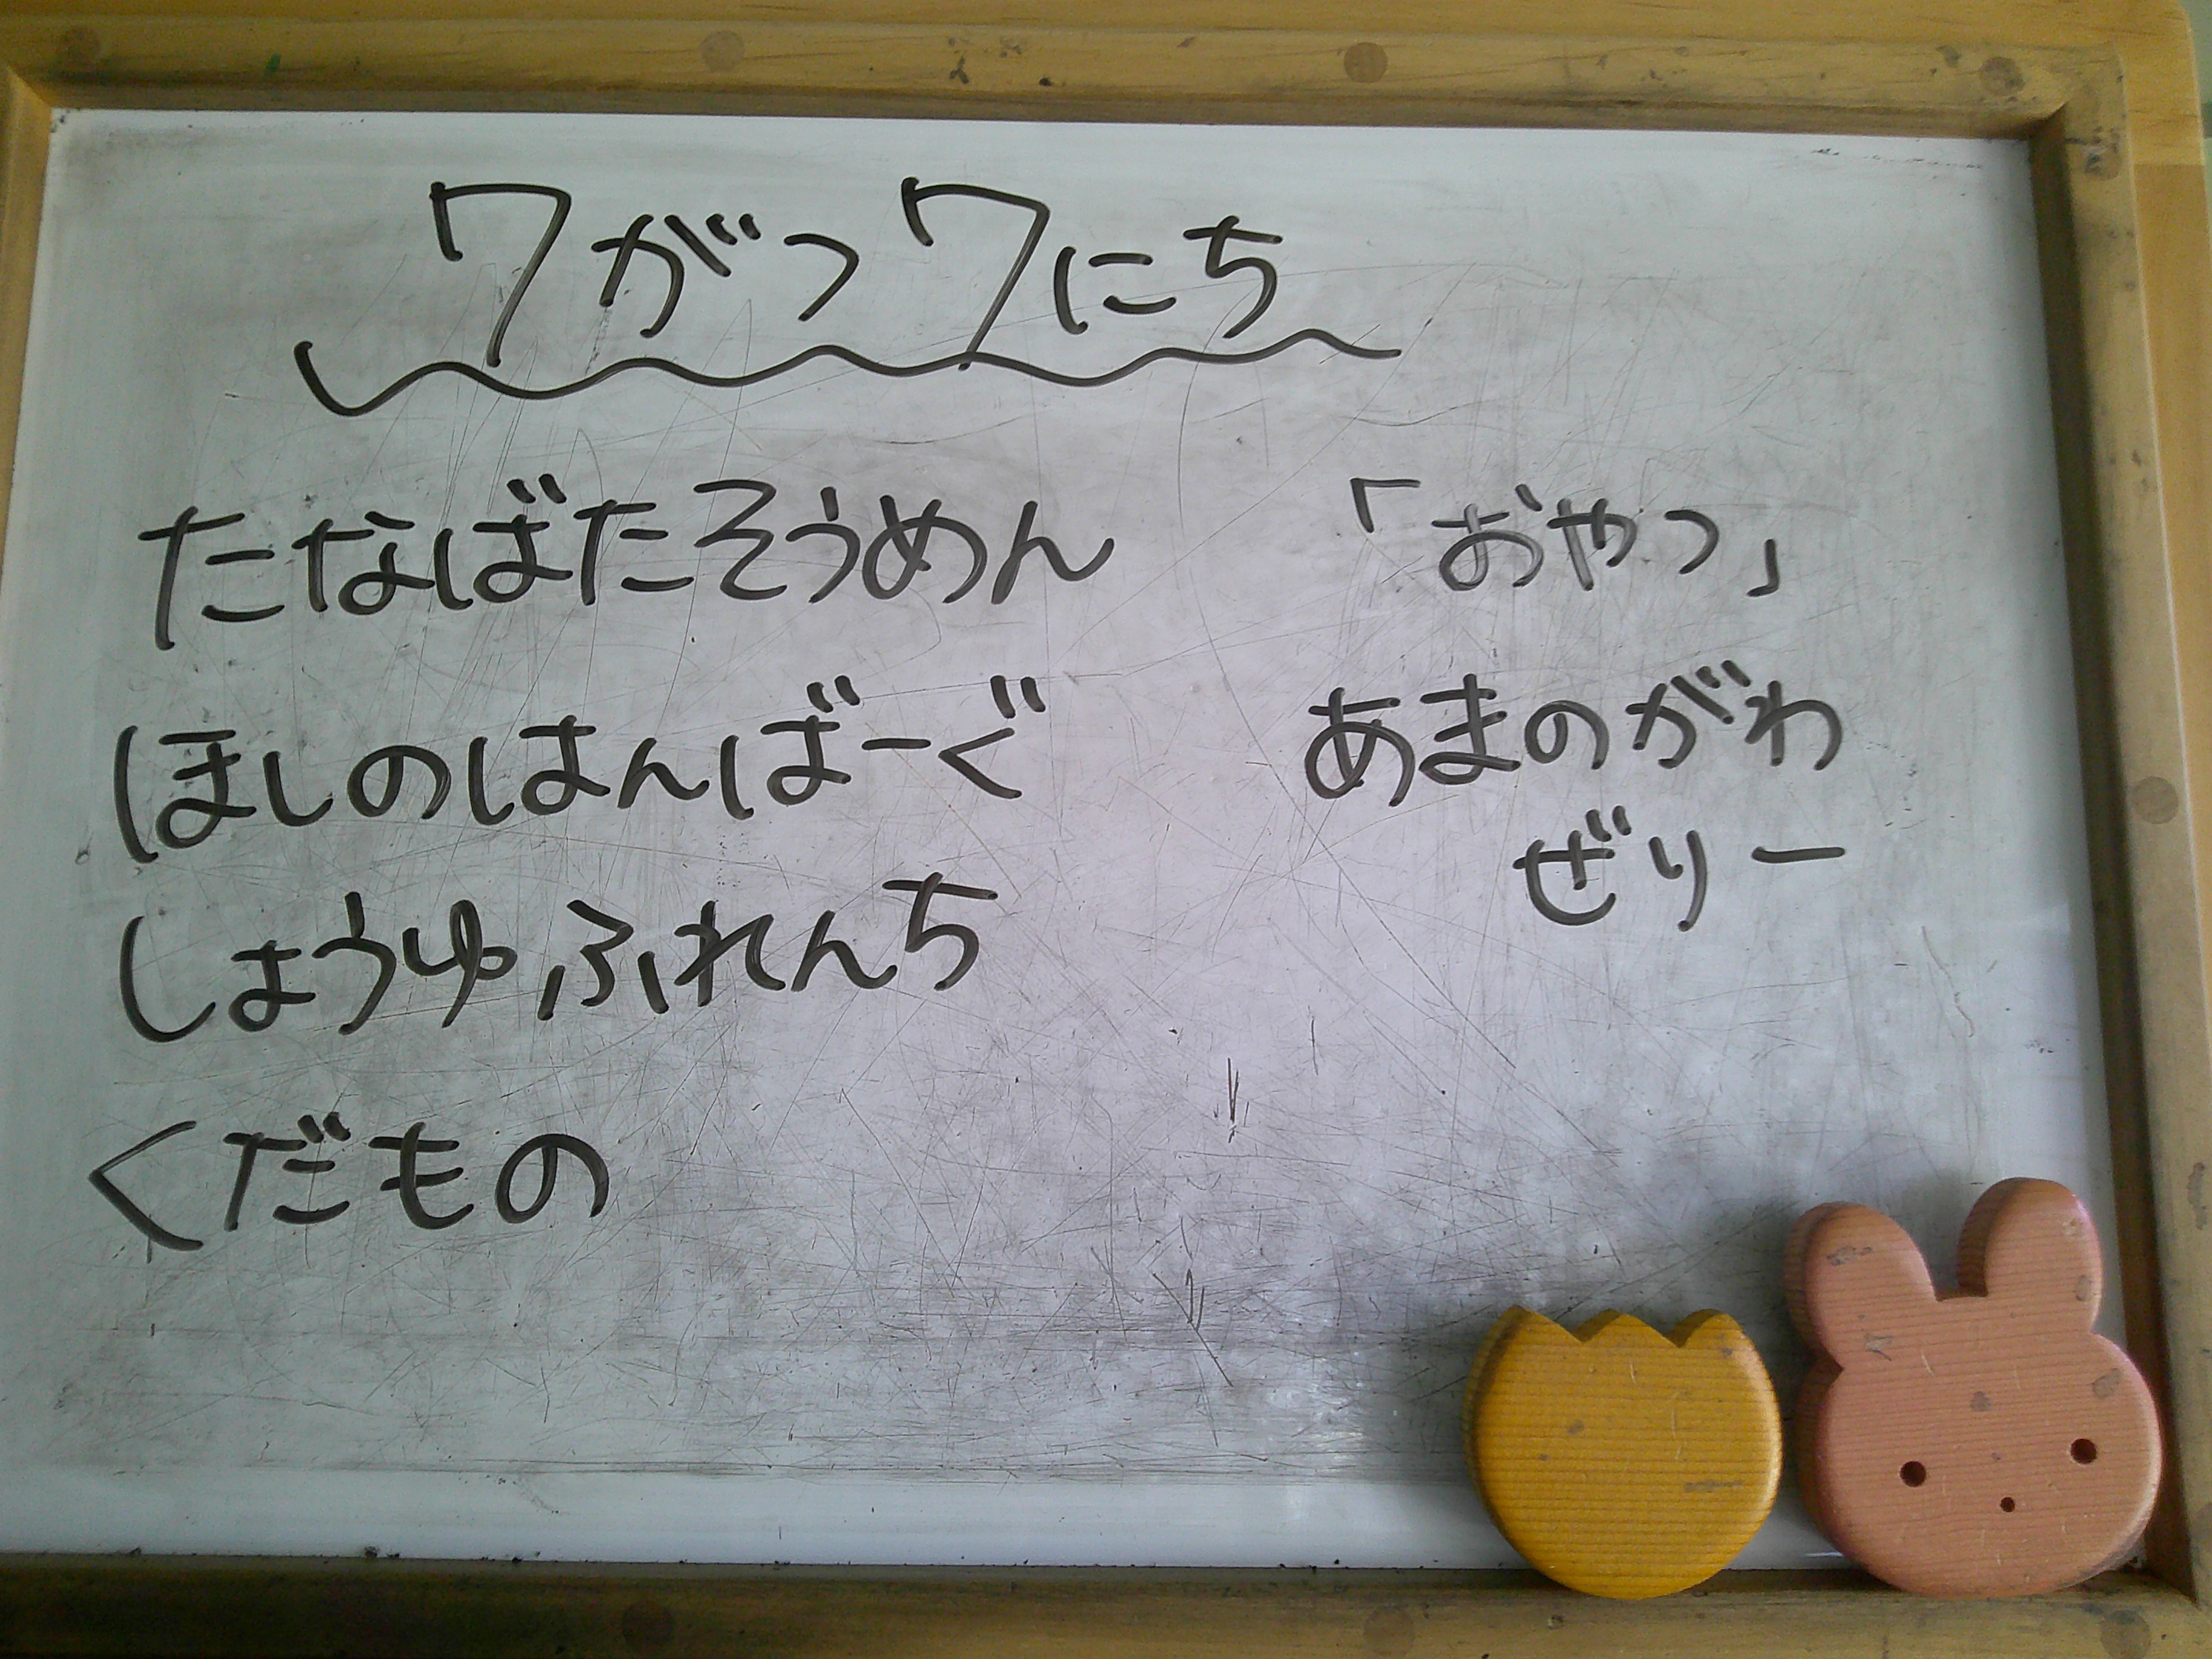 7がつ7にち
たなばたそうめん
ほしのはんばーぐ
しょうゆふれんち
くだもの
「おやつ」
あまのがわ
ぜりー